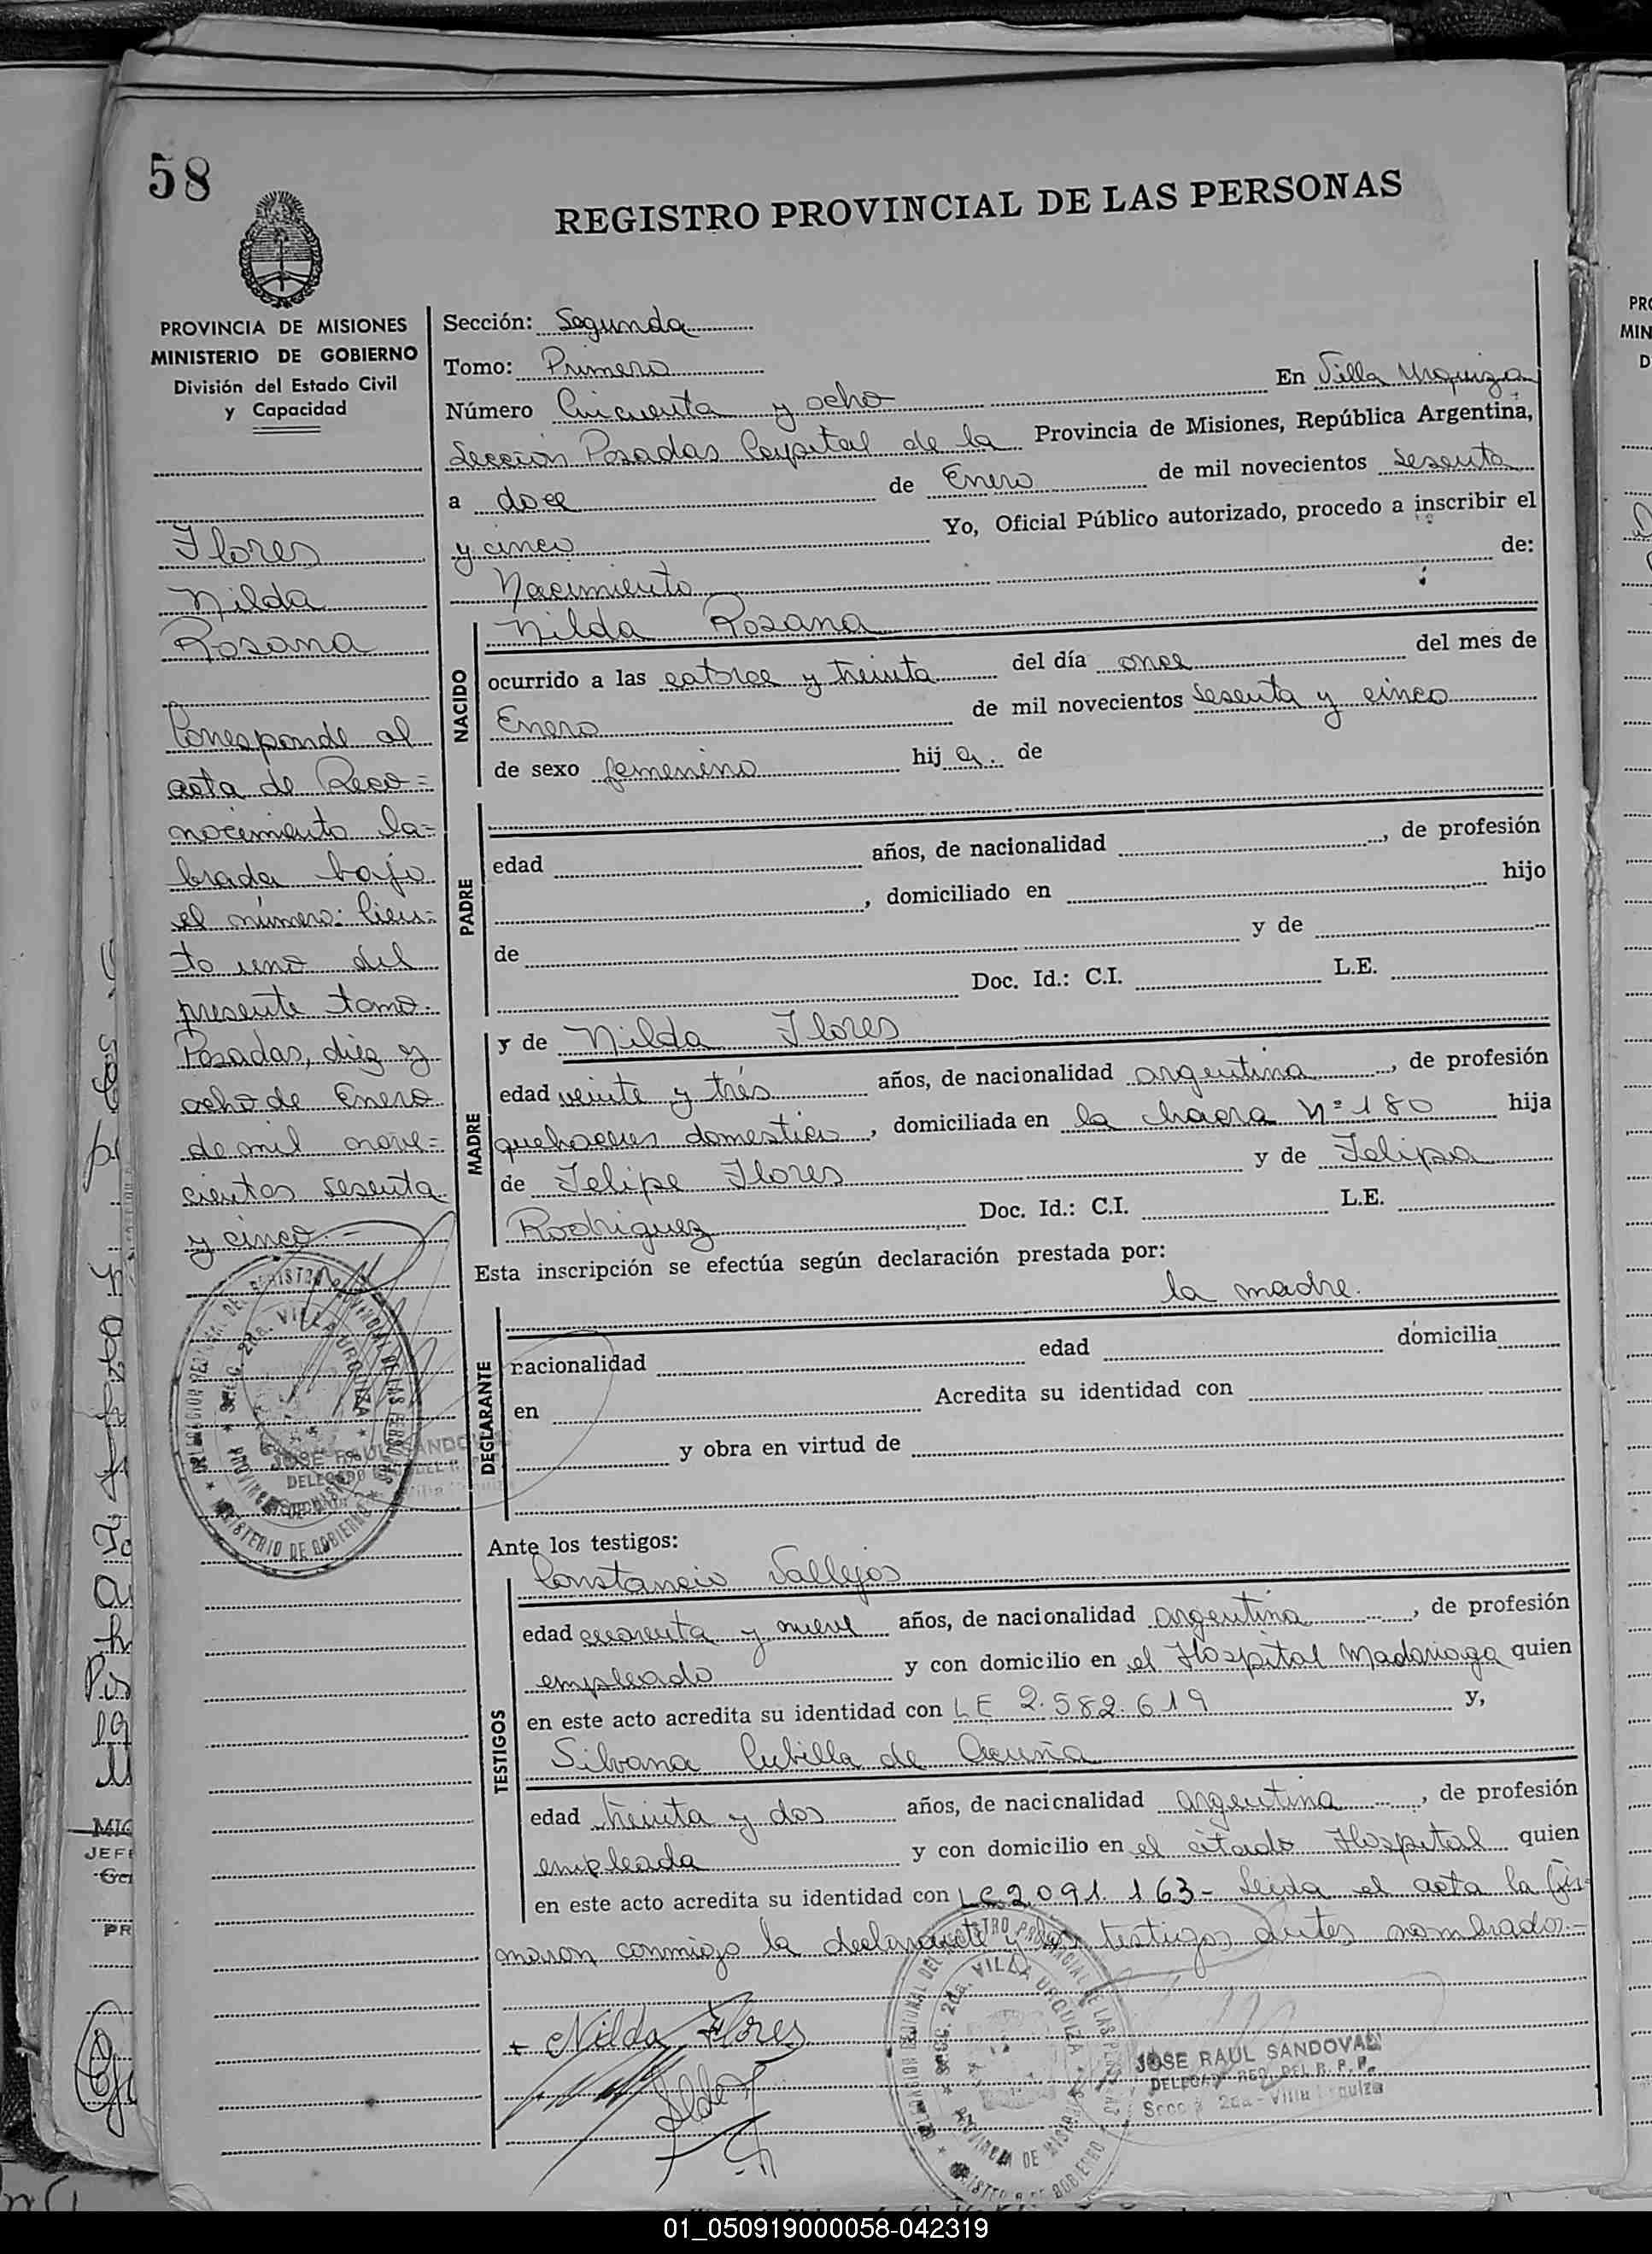 58
REGISTRO PROVINCIAL DE LAS PERSONAS
PROVINCIA DE MISIONES
MINISTERIO DE GOBIERNO
División del Estado Civil
y Capacidad
Flores
Nilda
Rosana
Corresponde al
acta de Reco=
nocimiento la=
brada bajo
el número: Cien=
to uno del
presente tomo.
Posadas, diez y
ocho de Enero
de mil nove=
cientos sesenta
y cinco.-
Sección: Segunda
Tomo: Primero
Número Cincuenta y ocho En Villa Urquiza
Sección Posadas Capital de la Provincia de Misiones, República Argentina,
a doce de Enero de mil novecientos sesenta
y cinco Yo, Oficial Público autorizado, procedo a inscribir el
Nacimiento de:
NACIDO
Nilda Rosana
ocurrido a las catorce y treinta del día once del mes de
Enero de mil novecientos sesenta y cinco
de sexo femenino hij a. de
PADRE
edad años, de nacionalidad , de profesión
, domiciliado en hijo
de y de
Doc. Id.: C.I. L.E.
MADRE
y de Nilda Flores
edad veinte y trés años, de nacionalidad argentina , de profesión
quehaceres domestico , domiciliada en la chacra Nº 180 hija
de Felipe Flores y de Felipa
Rodriguez Doc. Id.: C.I. L.E.
Esta inscripción se efectúa según declaración prestada por:
la madre.
DECLARANTE
nacionalidad edad domicilia
en Acredita su identidad con
y obra en virtud de
Ante los testigos:
TESTIGOS
Constancio Vallejos
edad cuarenta y nueve años, de nacionalidad argentina , de profesión
empleado y con domicilio en el Hospital Madariaga quien
en este acto acredita su identidad con LE 2.582.619 y,
Silvana Cubilla de Acuña
edad treinta y dos años, de nacionalidad argentina , de profesión
empleada y con domicilio en el citado Hospital quien
en este acto acredita su identidad con LC 2.091.163- Leida el acta la fir-
maron conmigo la declarante y los testigos antes nombrados.-
Nilda Flores
JOSE RAUL SANDOVAL
DELEGADO REG. DEL R. P. P.
Secc. 2da - Villa Urquiza
SECC. 2da. VILLA URQUIZA
PROVINCIA DE MISIONES
MINISTERIO DE GOBIERNO
JOSE RAUL SANDOVAL
01_050919000058-042319